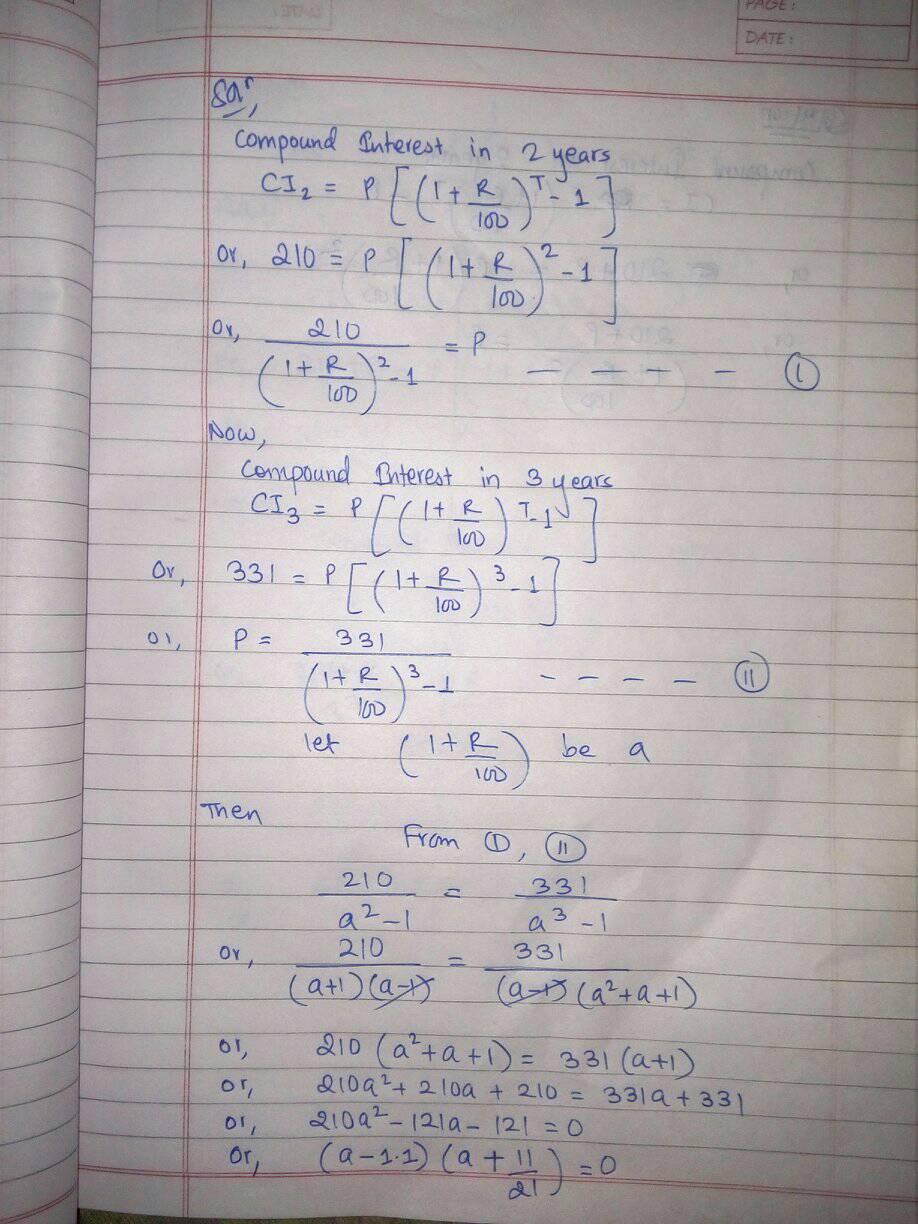 PAGE:
DATE:
Solⁿ,
Compound Interest in 2 years
CI₂ = P [(1 + R/100)ᵀ - 1]
Or, 210 = P [(1 + R/100)² - 1]
Or, 210/((1 + R/100)² - 1) = P - - - - (I)
Now,
Compound Interest in 3 years
CI₃ = P [(1 + R/100)ᵀ - 1]
Or, 331 = P [(1 + R/100)³ - 1]
or, P = 331/((1 + R/100)³ - 1) - - - - (II)
let (1 + R/100) be a
Then
From (I), (II)
210/(a² - 1) = 331/(a³ - 1)
or, 210/((a+1)(a-1)) = 331/((a-1)(a²+a+1))
or, 210 (a²+a+1) = 331 (a+1)
or, 210a² + 210a + 210 = 331a + 331
or, 210a² - 121a - 121 = 0
or, (a - 1.1) (a + 11/21) = 0